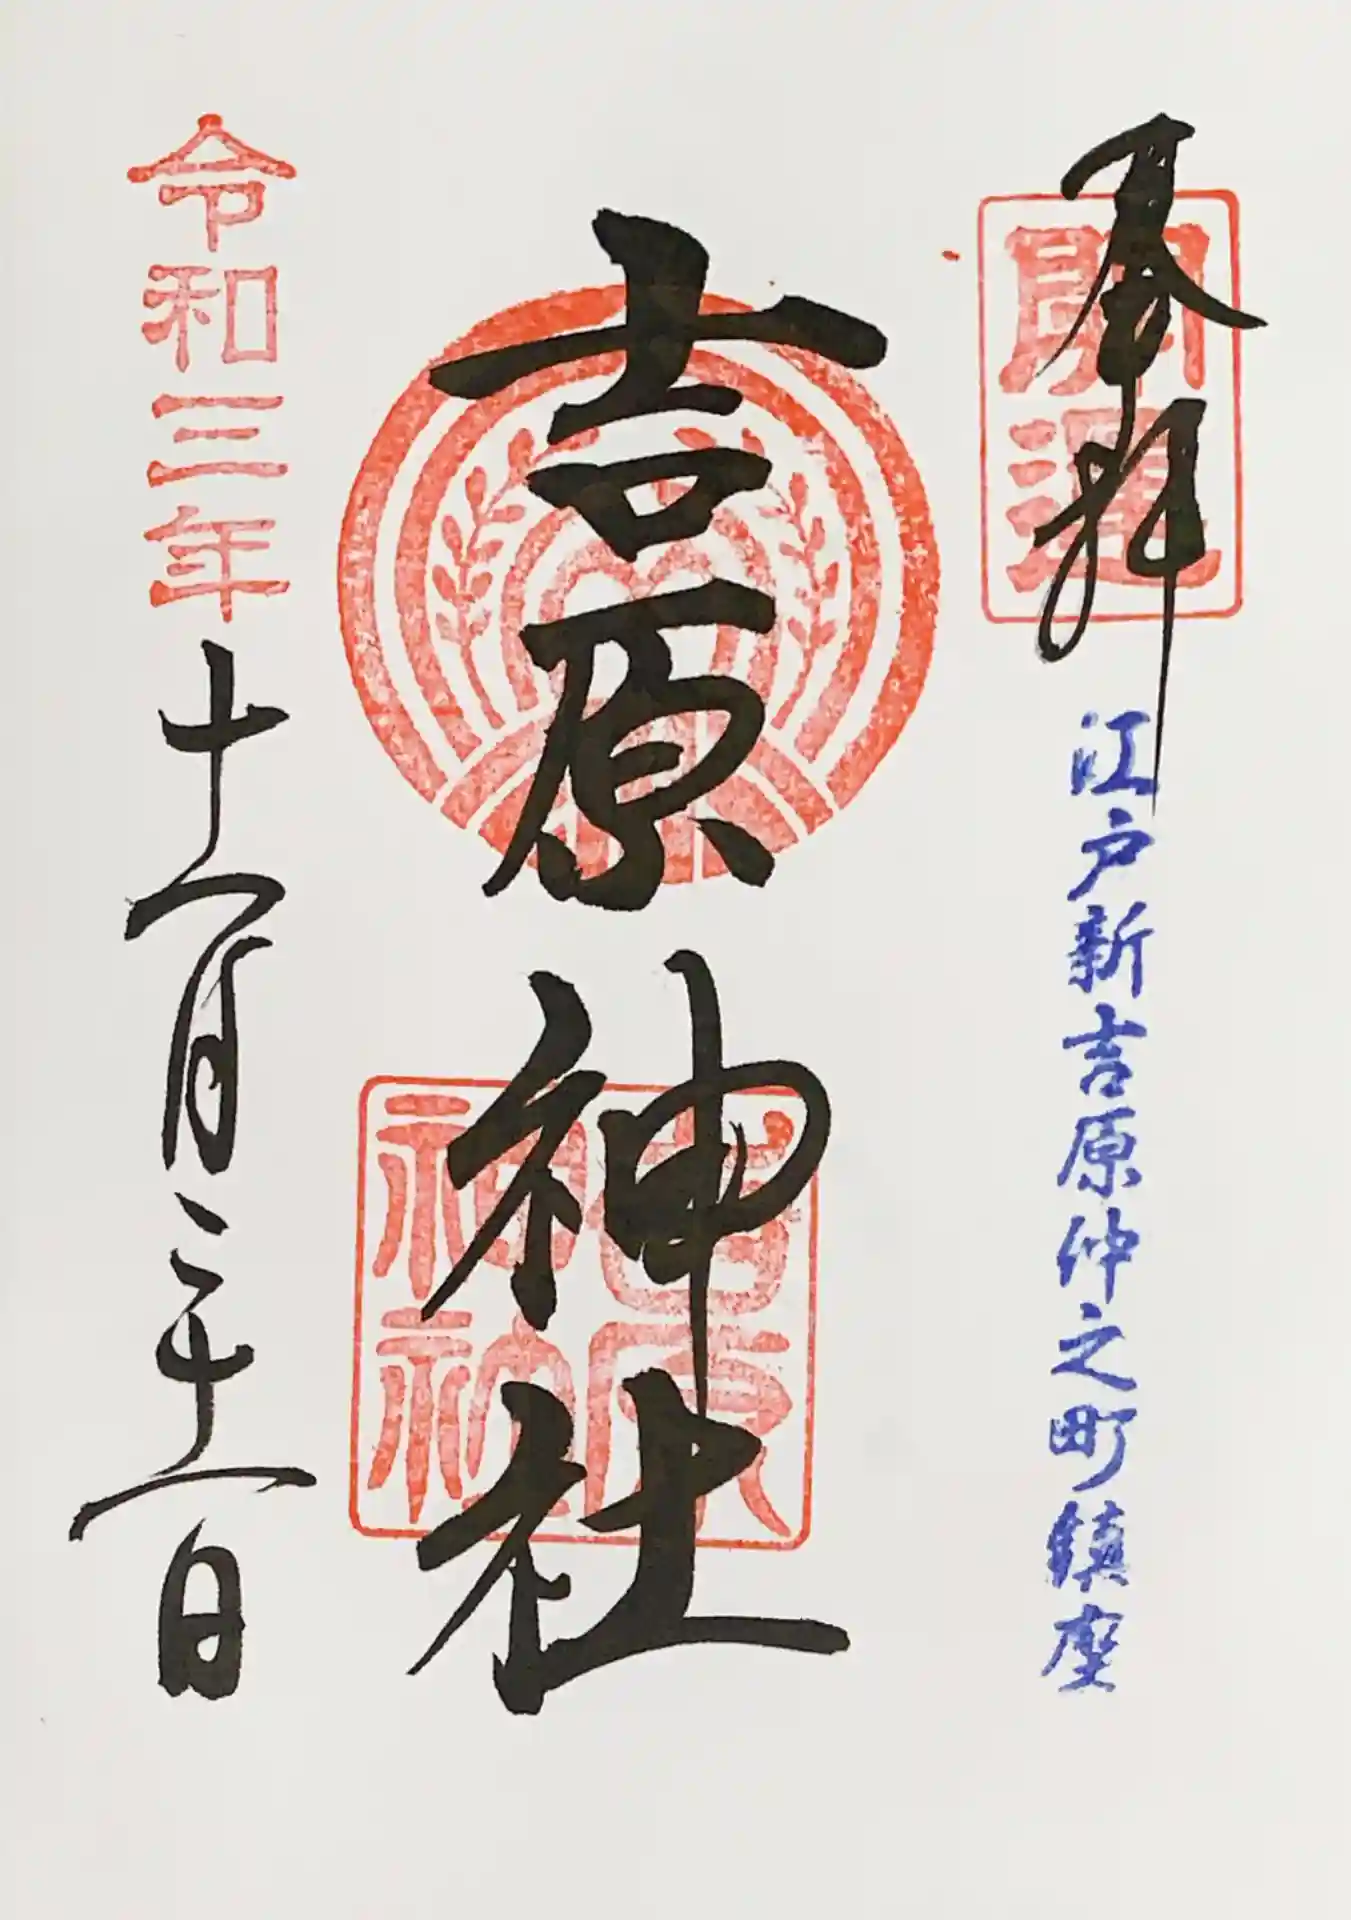 奉拝
開運
江戸新吉原仲之町鎮座
吉原神社
吉原
神社
令和三年十一月二十一日